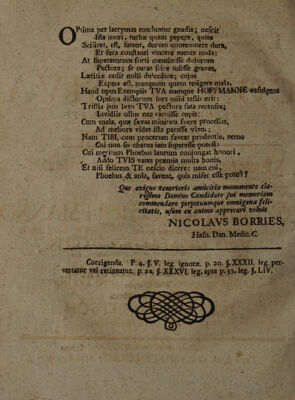 OPtima per lacrymas consistunt gaudia; nescit
Ista mori, turba quam pepere, quies
Scilicet, est, fateor, durum contemnere dura,
Et fera constanti vincere mente mala;
At superatorum forti meminisse dolorum
Pectore; se curas scire tulisse graves,
Lætitiæ cedit nulli dulcedine; cujus
Expers est, nunquam quem tetigere mala.
Haud opus Exemplis TVA namque HOFFMANNE refulgens
Optima dictorum sors mihi testis erit:
Tristia jam lato TVA pectore fata recenses;
Invidiis olim nec caruisse cupis:
Cum mala, quæ sævas minitata fuere procellas,
Ad meliora vides ista parasse viam;
Nam TIBI, cum procerum faveat prudentia, nemo
Cui non sis charus jam superesse potest:
Cui meritum Phoebus laurum conjungat honori,
Addo TVIS vates præmia multa bonis,
Et nisi felicem TE nescio dicere: nam cui,
Phoebus & aula, favent, quis miser esse potest?
Quo exiguo tenerioris amicitiæ monumento cla-
rissimo Domino Candidato sui memoriam
commendare perpetuumque omnigena feli-
citatis, usum ex animo apprecari voluit
NICOLAVS BORRIES,
Hafn. Dan. Medic. C.
Corrigenda. P. 4. §. V. leg. ignotæ. p. 20. §. XXXII. leg. per-
vertatur vel retineatur. p. 22. §. XXXVI. leg. apta p. 32. leg. §. LIV.